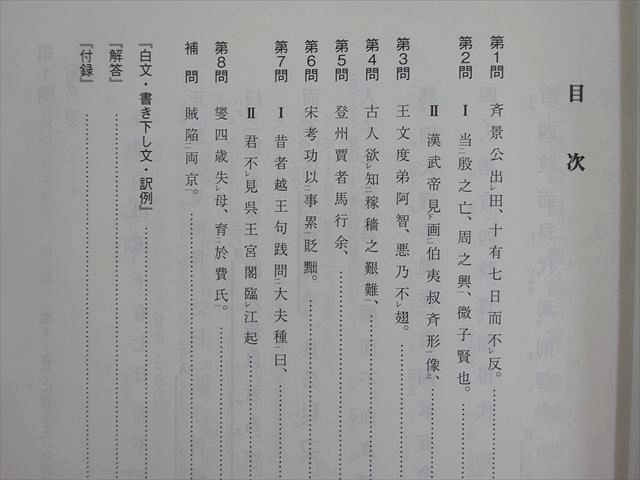 目次
第1問 斉景公出レ田、十有七日而不レ反。
第2問 Ⅰ 当二殷之亡、周之興、微子賢一也。
Ⅱ 漢武帝見下画二伯夷叔斉形一像上、
第3問 王文度弟阿智、悪乃不レ翅。
第4問 古人欲レ知二稼穡之艱難一、
第5問 登州賈者馬行余、
第6問 宋考功以二事累一貶黜。
第7問 Ⅰ 昔者越王句践問二大夫種一曰、
Ⅱ 君不レ見呉王宮閣臨レ江起
第8問 燮四歳失レ母、育二於費氏一。
補問 賊陥二両京一。
『白文・書き下し文・訳例』
『解答』
『付録』